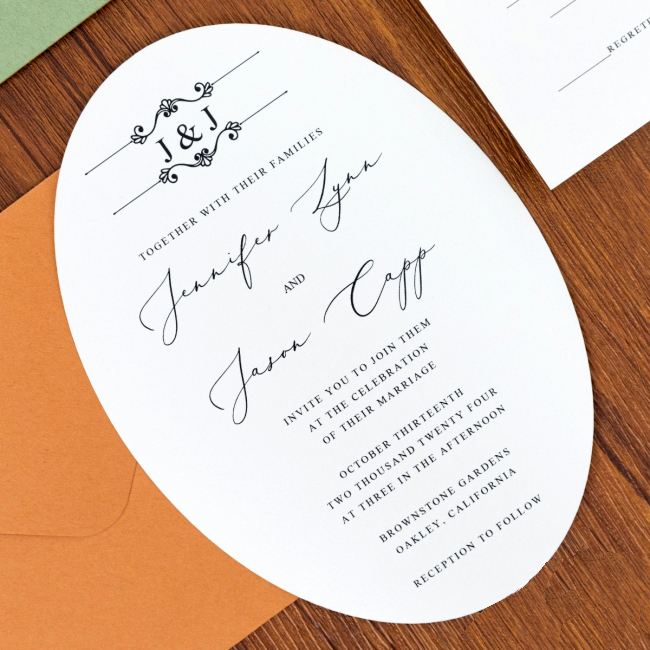 J & J
TOGETHER WITH THEIR FAMILIES
Jennifer Lynn
AND
Jason Capp
INVITE YOU TO JOIN THEM
AT THE CELEBRATION
OF THEIR MARRIAGE
OCTOBER THIRTEENTH
TWO THOUSAND TWENTY FOUR
AT THREE IN THE AFTERNOON
BROWNSTONE GARDENS
OAKLEY, CALIFORNIA
RECEPTION TO FOLLOW